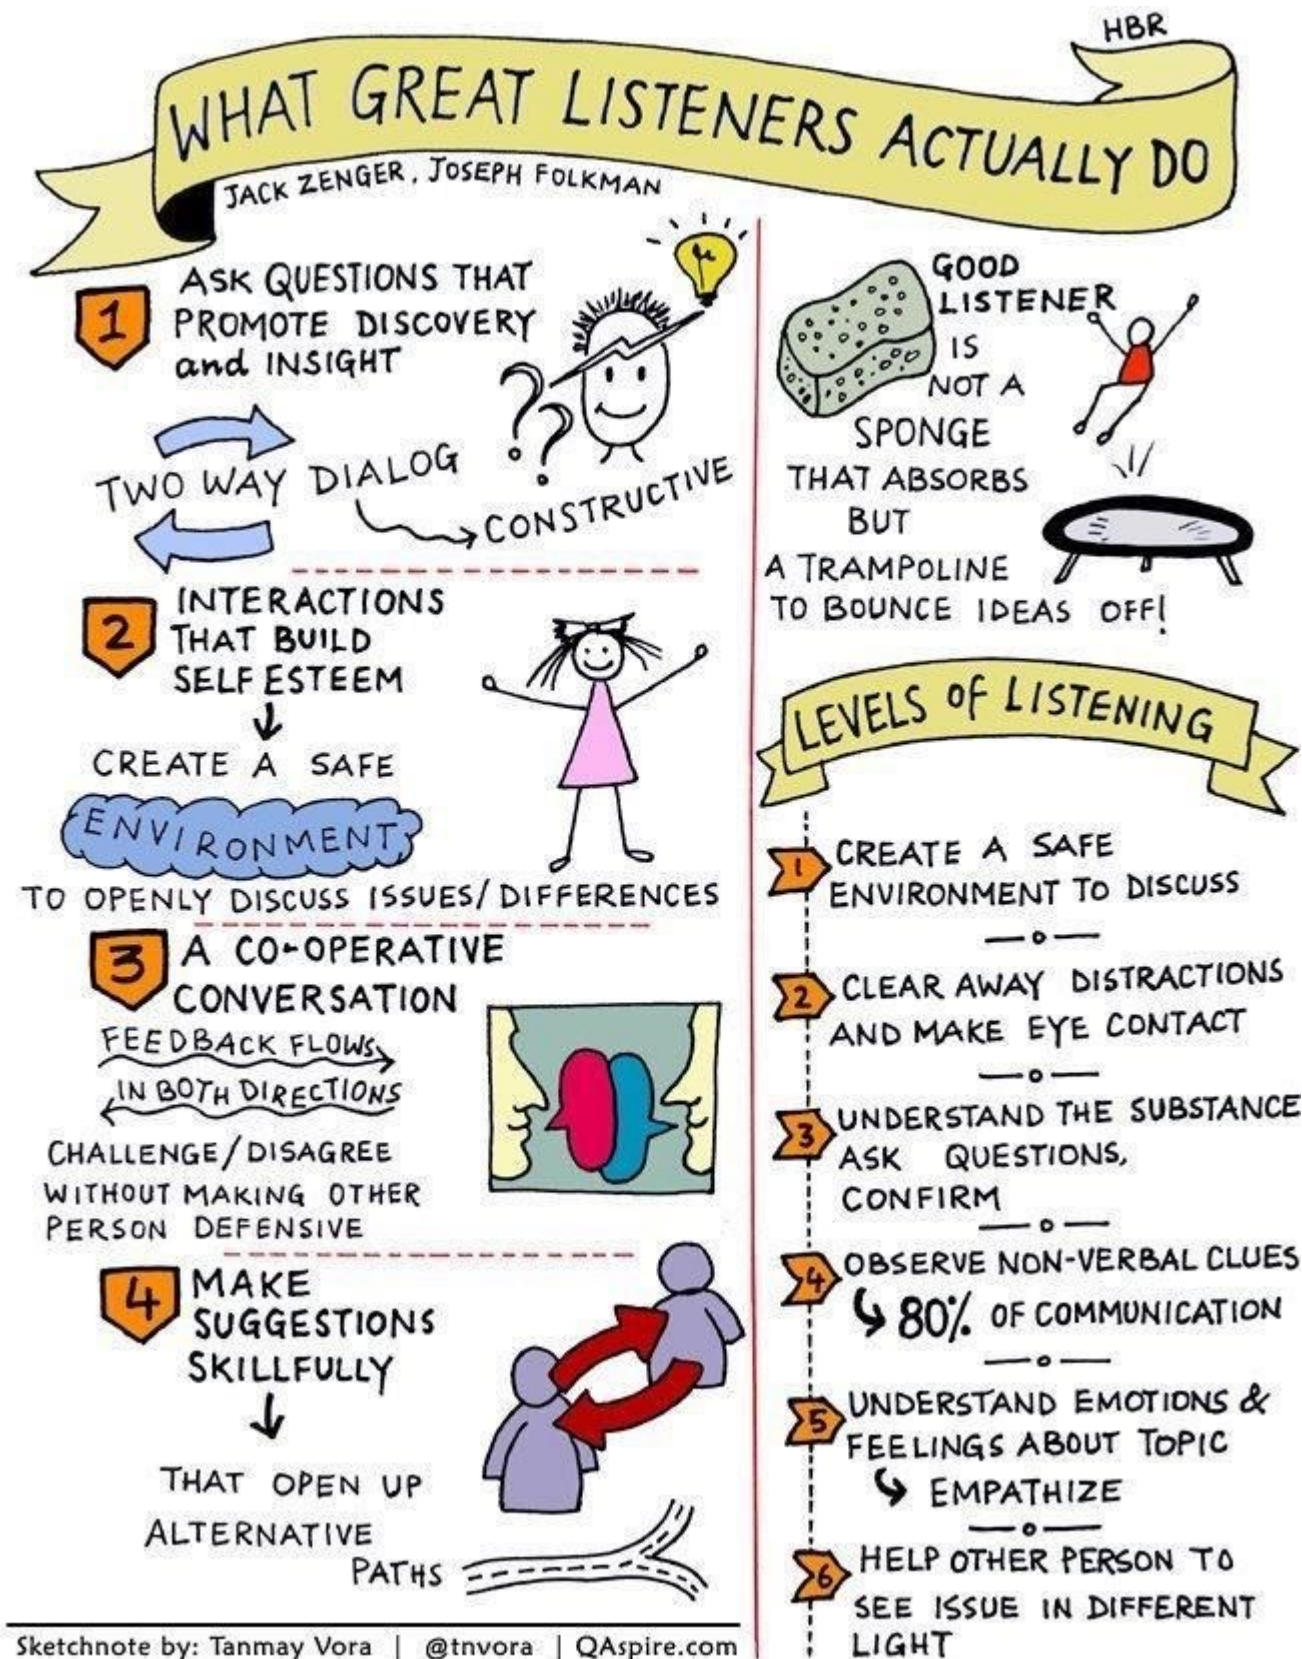 HBR
WHAT GREAT LISTENERS ACTUALLY DO
JACK ZENGER, JOSEPH FOLKMAN
1
ASK QUESTIONS THAT
PROMOTE DISCOVERY
and INSIGHT
??
TWO WAY DIALOG
CONSTRUCTIVE
2
INTERACTIONS
THAT BUILD
SELF ESTEEM
CREATE A SAFE
ENVIRONMENT
TO OPENLY DISCUSS ISSUES/DIFFERENCES
3
A CO-OPERATIVE
CONVERSATION
FEEDBACK FLOWS
IN BOTH DIRECTIONS
CHALLENGE/DISAGREE
WITHOUT MAKING OTHER
PERSON DEFENSIVE
4
MAKE
SUGGESTIONS
SKILLFULLY
THAT OPEN UP
ALTERNATIVE
PATHS
Sketchnote by: Tanmay Vora | @tnvora | QAspire.com
GOOD
LISTENER
IS
NOT A
SPONGE
THAT ABSORBS
BUT
A TRAMPOLINE
TO BOUNCE IDEAS OFF!
LEVELS OF LISTENING
1
CREATE A SAFE
ENVIRONMENT TO DISCUSS
2
CLEAR AWAY DISTRACTIONS
AND MAKE EYE CONTACT
3
UNDERSTAND THE SUBSTANCE
ASK QUESTIONS,
CONFIRM
4
OBSERVE NON-VERBAL CLUES
80% OF COMMUNICATION
5
UNDERSTAND EMOTIONS &
FEELINGS ABOUT TOPIC
EMPATHIZE
6
HELP OTHER PERSON TO
SEE ISSUE IN DIFFERENT
LIGHT